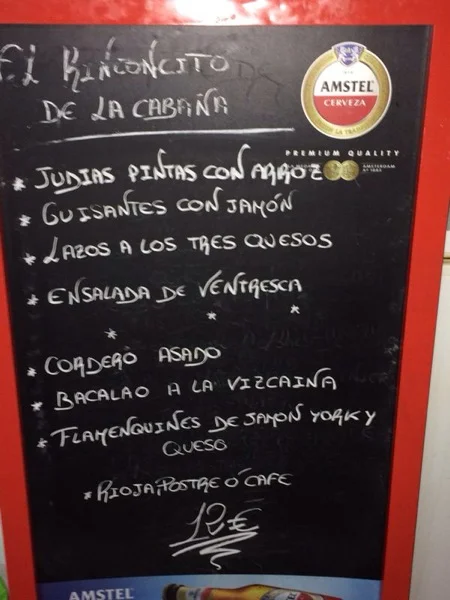 EL RINCONCITO
DE LA CABAÑA
AMSTEL
CERVEZA
PREMIUM QUALITY
AMSTERDAM
* JUDIAS PINTAS CON ARROZ
* GUISANTES CON JAMÓN
* LAZOS A LOS TRES QUESOS
* ENSALADA DE VENTRESCA
* * *
* CORDERO ASADO
* BACALAO A LA VIZCAINA
* FLAMENQUINES DE JAMON YORK Y
QUESO
* RIOJA, POSTRE Ó CAFE
12€
AMSTEL